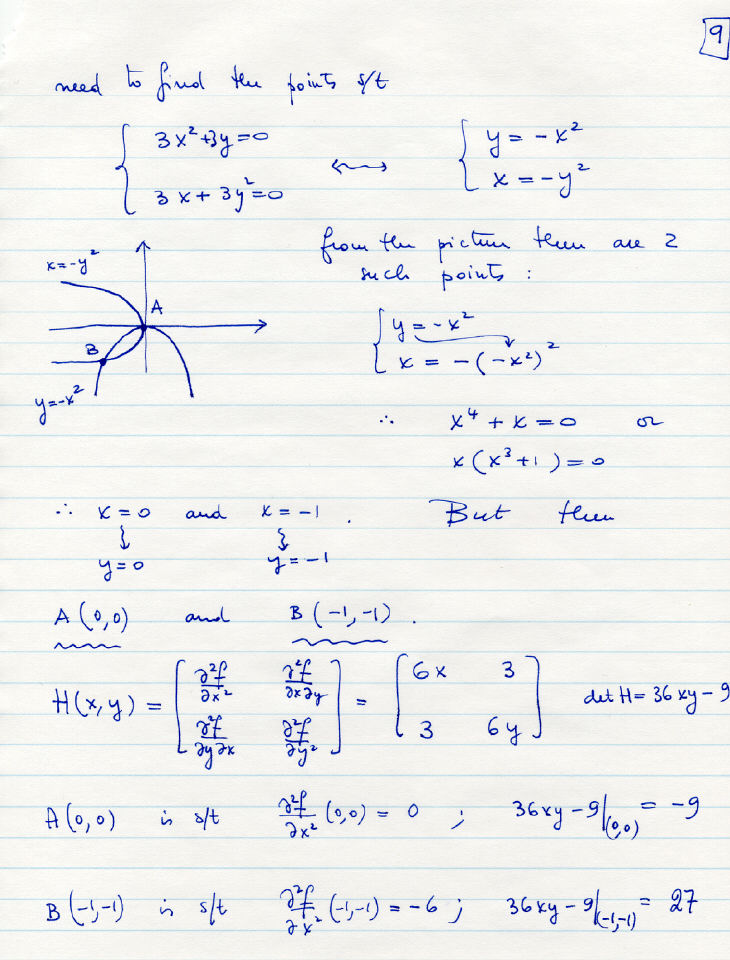 9
need to find the points s/t
{ 3x²+3y=0
3x+3y²=0 ⟷ { y=-x²
x=-y²
from the picture there are 2
such points :
x=-y²
A
B
y=-x²
{ y=-x²
x = -(-x²)²
∴ x⁴+x=0 or
x(x³+1)=0
∴ x=0 and x=-1 . But then
y=0 y=-1
A(0,0) and B(-1,-1).
H(x,y) = [ ∂²f/∂x² ∂²f/∂x∂y
∂²f/∂y∂x ∂²f/∂y² ] = [ 6x 3
3 6y ] det H = 36xy-9
A(0,0) is s/t ∂²f/∂x² (0,0) = 0 ; 36xy-9|(0,0) = -9
B(-1,-1) is s/t ∂²f/∂x² (-1,-1) = -6 ; 36xy-9|(-1,-1) = 27